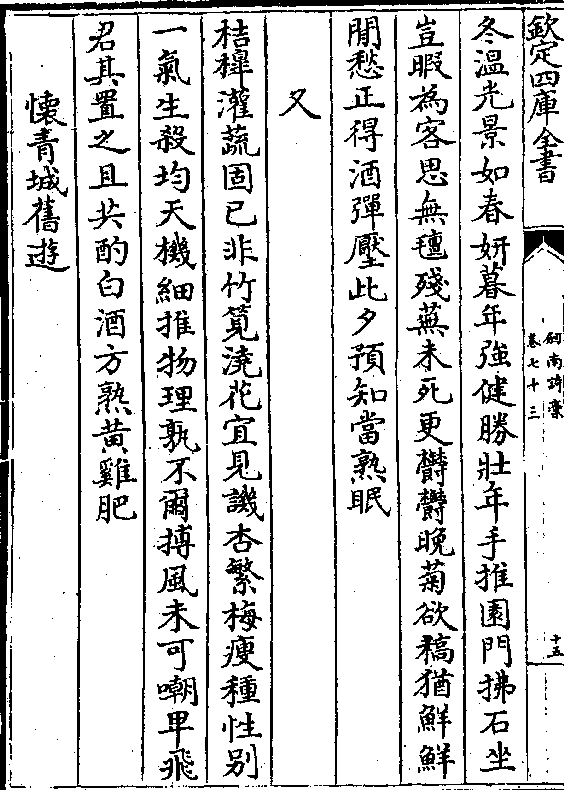 欽定四庫全書
劍南詩稾
卷七十三
十五
冬溫光景如春妍暮年強健勝壯年手推園門拂石坐
豈暇為客思無氊殘蕪未死更欝欝晚菊欲稿猶鮮鮮
閒愁正得酒彈壓此夕預知當熟眠
又
桔槔灌蔬固已非竹筧澆花宜見譏杏繁梅瘦種性别
一氣生殺均天機細推物理孰不爾搏風未可嘲卑飛
君其置之且共酌白酒方熟黄雞肥
懷青城舊遊